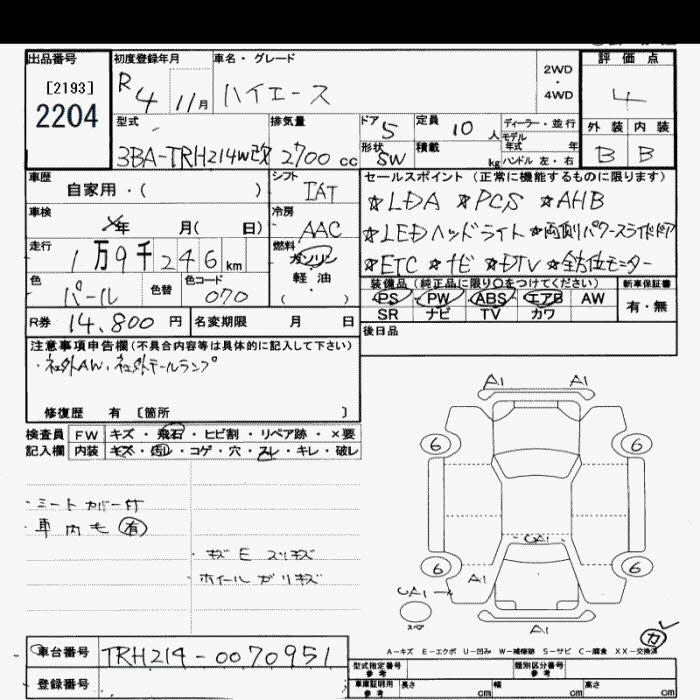 出品番号
[2193]
2204
初度登録年月
R 4 11月
車名・グレード
ハイエース
2WD
・
4WD
評価点
4
外装 内装
B B
型式
3BA-TRH214W改
排気量
2700 cc
ドア 5
形状 SW
定員 10 人
積載 kg
ディーラー・並行
モデル
年式 年
ハンドル 左・右
車歴
自家用・( )
シフト
IAT
車検
年 月( 日)
冷房
AAC
走行
1万9千246km
燃料
ガソリン
軽油
( ・ )
色
パール
色替
色コード
070
R券 14,800 円
名変期限 月 日
セールスポイント(正常に機能するものに限ります)
☆LDA ☆PCS ☆AHB
☆LEDヘッドライト ☆両側パワースライドドア
☆ETC ☆ナビ ☆DTV ☆全方位モニター
装備品(純正品に限り○をつけてください)
PS PW ABS エアB AW
SR ナビ TV カワ
新車保証書
有・無
後日品
注意事項申告欄(不具合内容等は具体的に記入して下さい)
・社外AW、社外テールランプ
修復歴 有 [箇所 ]
検査員 FW キズ・飛石・ヒビ割・リペア跡・×要
記入欄 内装 キズ・汚レ・コゲ・穴・スレ・キレ・破レ
・シートカバー付
・車内モ(有)
・キズE スリキズ
ホイールガリキズ
A1 A1
6 6
CA1
6 6
A1
CA1
スペア
A1
カ
A-キズ E-エクボ U-凹み W-補修跡 S-サビ C-腐食 XX-交換済
車台番号 TRH214-0070951
登録番号
型式指定番号
参考
類別区分番号
参考
車庫証明用
参考
長さ cm 幅 cm 高さ cm